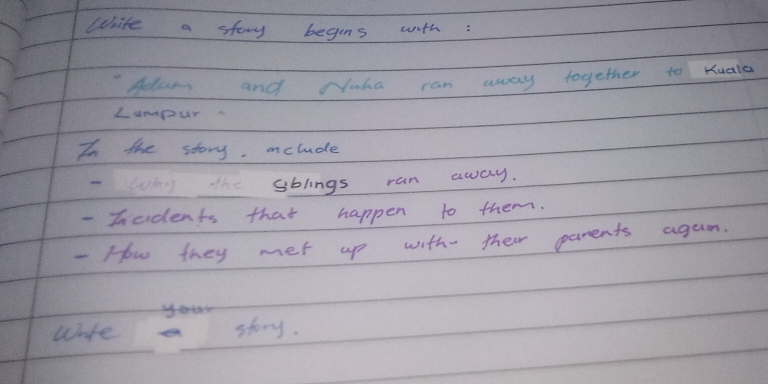 Write a story begins with :
"Adam and Nuha ran away together to Kuala
Lumpur.
In the story, include
- Why the siblings ran away.
- Incidents that happen to them.
- How they met up with their parents again.
your
Write a story.